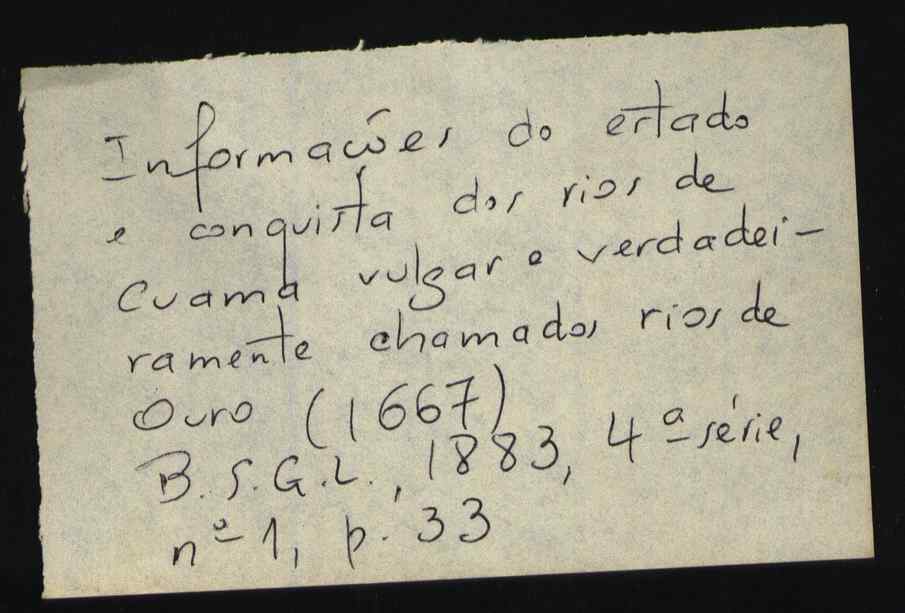 Informações do estado
e conquista dos rios de
Cuama vulgar e verdadei-
ramente chamados rios de
Ouro (1667)
B.S.G.L., 1883, 4ª série,
nº 1, p. 33